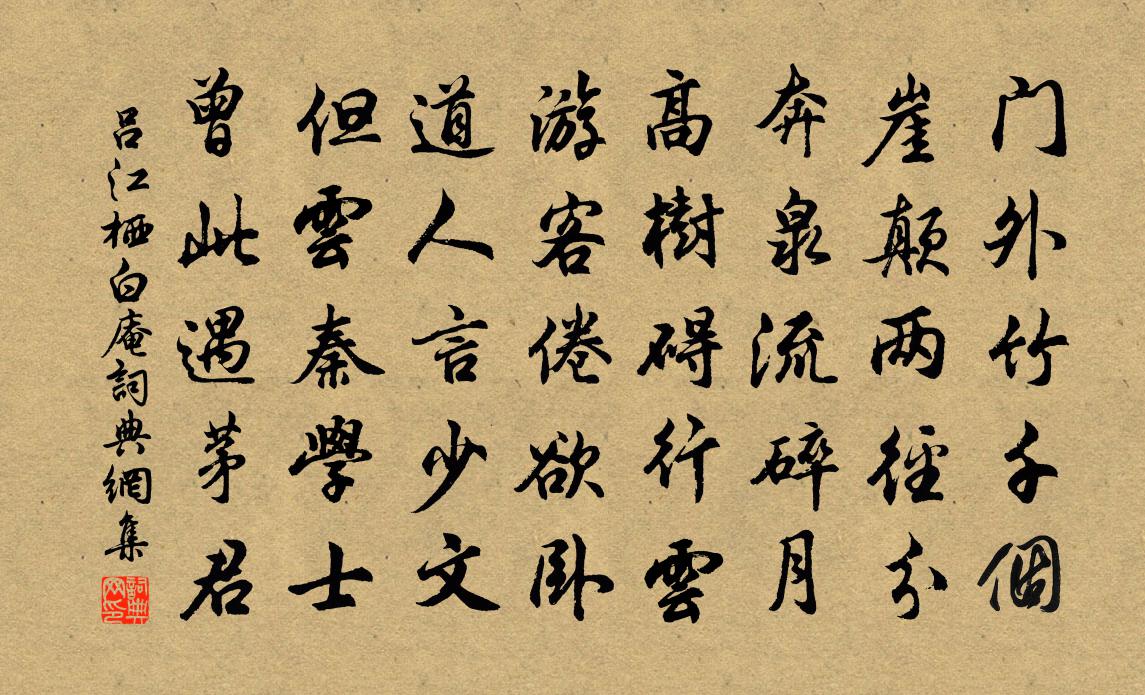 门外竹千個
崖颠两徑分
奔泉流碎月
高樹碍行雲
游客倦欲卧
道人言少文
但雲秦學士
曾此遇茅君
呂江栖白庵詞典網集
詞典网印